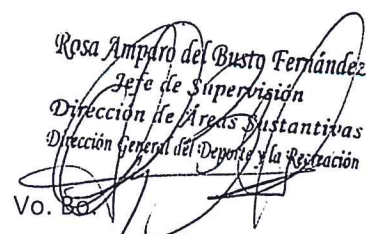 Rosa Amparo del Busto Fernández
Jefe de Supervisión
Dirección de Áreas Sustantivas
Dirección General del Deporte y la Recreación
Vo. Bo.